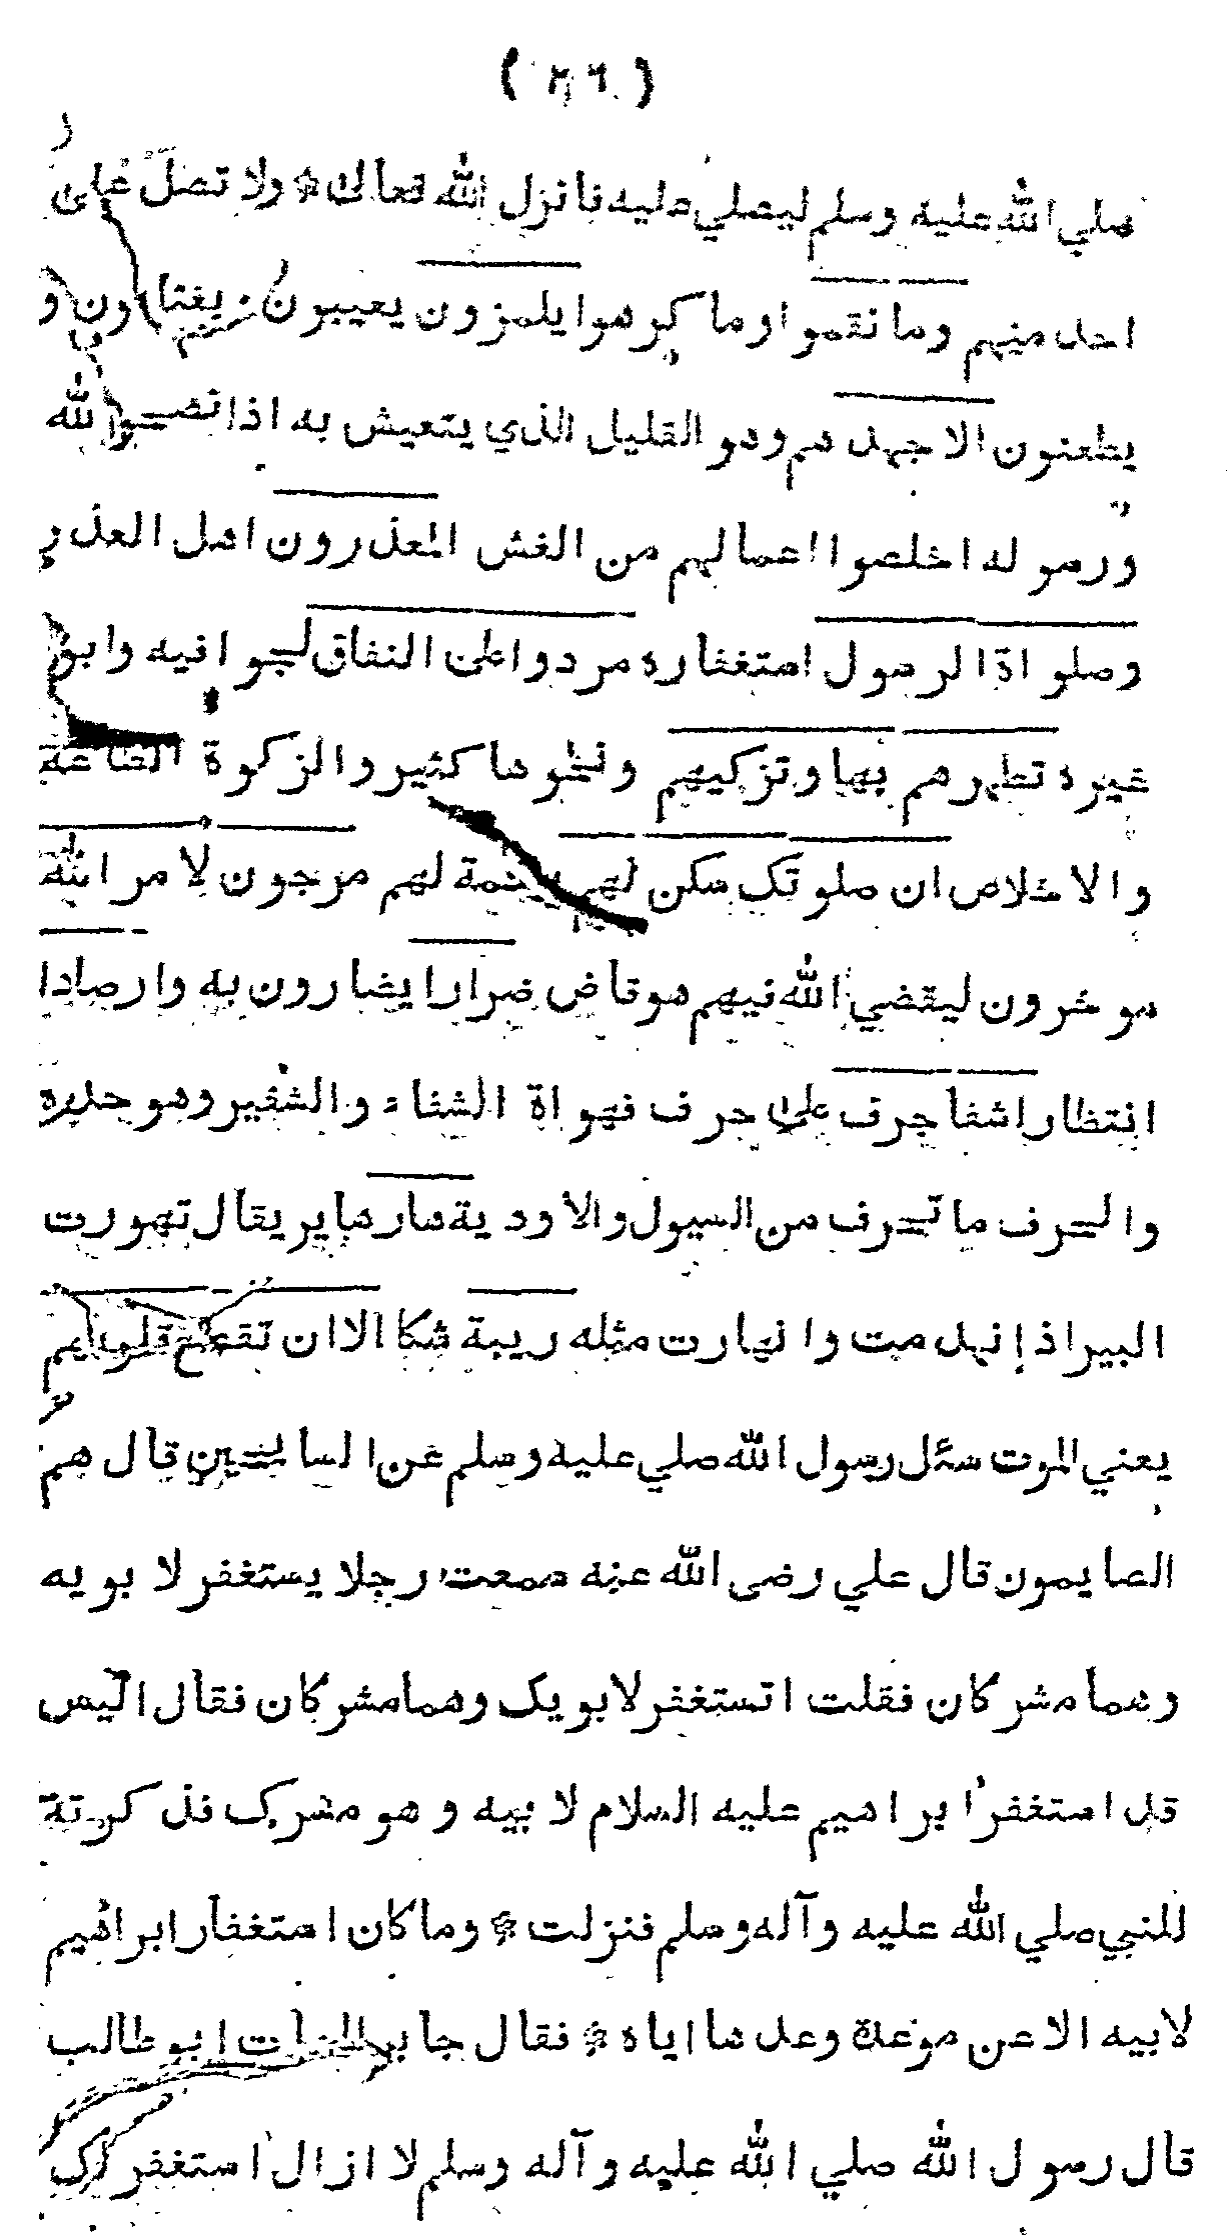 صلي الله عليه وسلم ليصلي عليه فانزل الله تعالى * ولا تصل على
احد منهم وما نقموا وما كرهوا يلمزون يعيبون و
يطعنون الا جهدهم وهو القليل الذي يتعيش به اذا نصحوا لله
ورسوله اخلصوا اعمالهم من الغش المعذرون اهل العذر
وصلواة الرسول استغفاره مردوا على النفاق لجوا فيه وابوا
غيره تطهرهم بها وتزكيهم ونحوها كثير والزكوة الطاعة
والاخلاص ان صلوتک سكن لهم رحمة لهم مرجون لامر الله
موخرون ليقضي الله فيهم هو قاض ضرارا يضارون به وارصادا
انتظارا شفا جرف على جرف فهواة الشفاء والشفير وهو حده
والجرف ما تجرف من السيول والاودية هار هاير يقال تهورت
البير اذا نهدمت وانهارت مثله ريبة شكا الا ان تقطع قلوبهم
يعني الموت سئل رسول الله صلي عليه وسلم عن السايحين قال هم
الصايمون قال علي رضى الله عنه سمعت رجلا يستغفر لابويه
وهما مشركان فقلت اتستغفر لابويک وهما مشركان فقال اليس
قد استغفر ابراهيم عليه السلام لابيه وهو مشرک فذكرته
للنبي صلي الله عليه وآله وسلم فنزلت * وما كان استغفار ابراهيم
لابيه الا عن موعدة وعدها اياه * فقال جابر لما مات ابو طالب
قال رسول الله صلي الله عليه وآله وسلم لا ازال استغفر لک